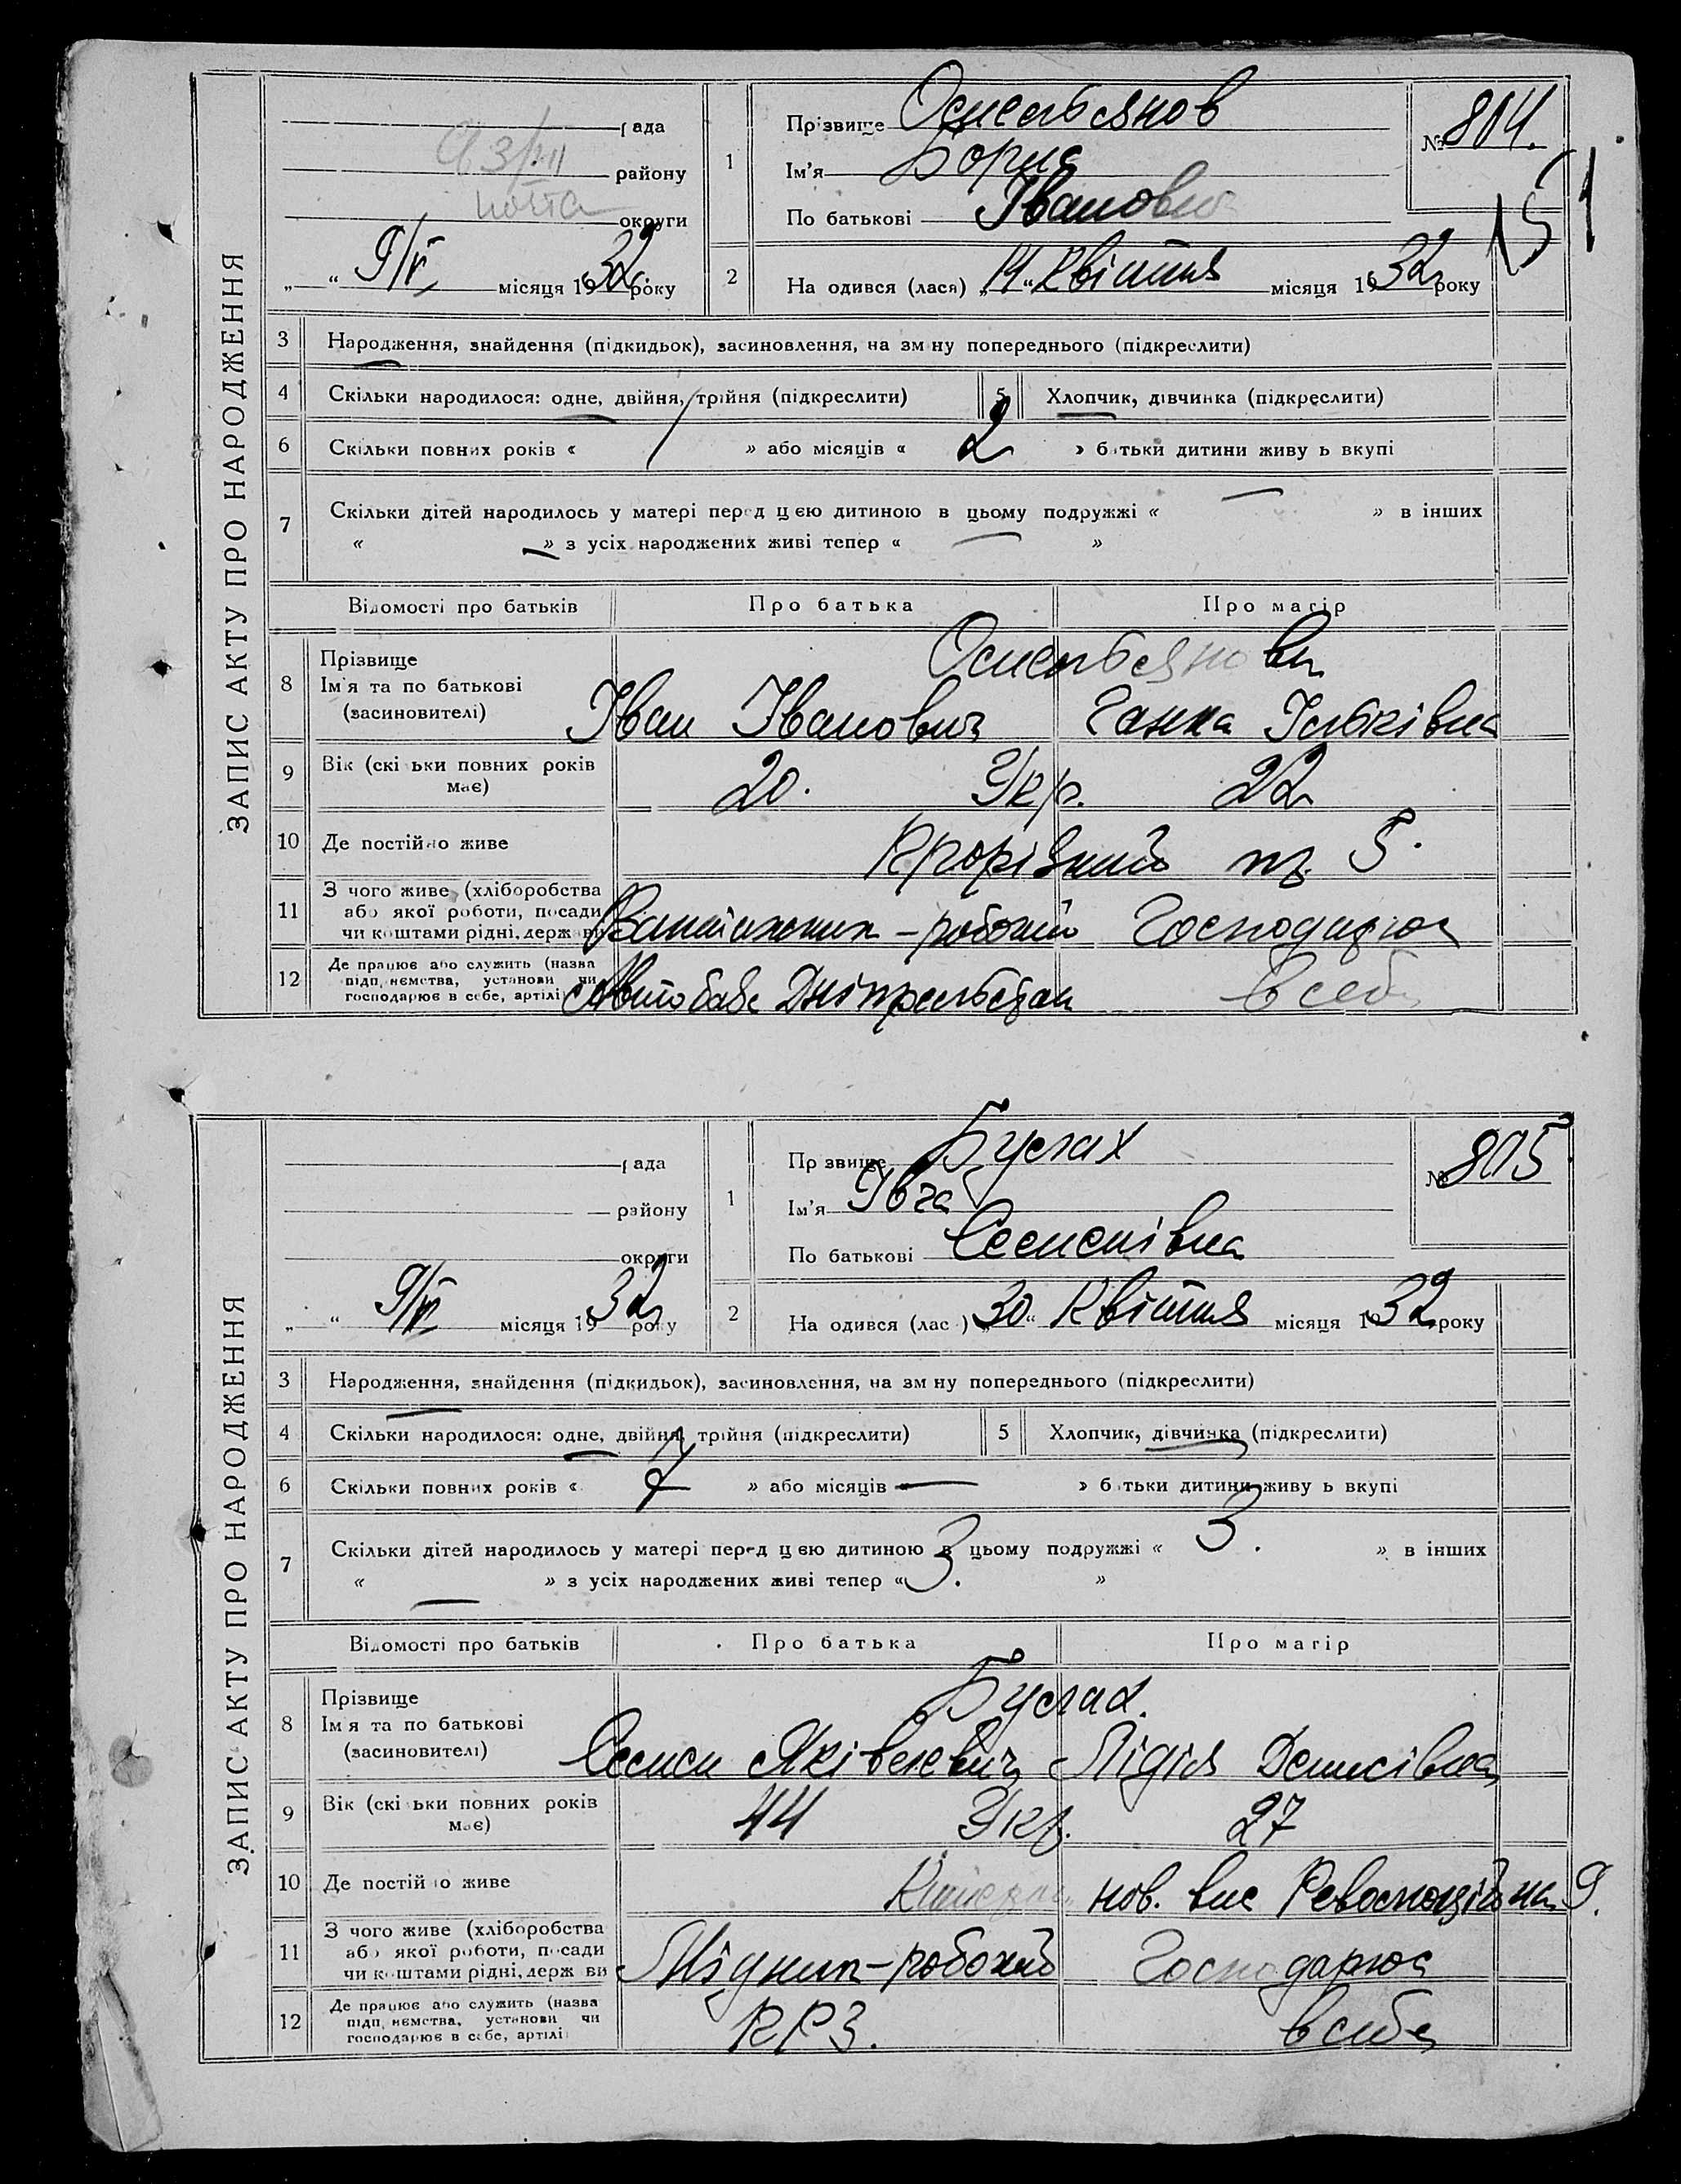 ЗАПИС АКТУ ПРО НАРОДЖЕННЯ
рада
району
округи
9/VI місяця 1932 року
1
Прізвище Омельянов
Ім'я Борис
По батькові Іванович
№ 804.
151
2
Народився (лася) „14“ Квітня місяця 1932 року
3 Народження, знайдення (підкидьок), засиновлення, на зміну попереднього (підкреслити)
4 Скільки народилося: одне, двійня, трійня (підкреслити) 5 Хлопчик, дівчинка (підкреслити)
6 Скільки повних років « / » або місяців « 2 » батьки дитини живуть вкупі
7 Скільки дітей народилось у матері перед цією дитиною в цьому подружжі « — » в інших
« — » з усіх народжених живі тепер « — »
Відомості про батьків Про батька Про матір
8 Прізвище Омельянови
Ім'я та по батькові Іван Іванович Ганна Ільківна
(засновителі)
9 Вік (скільки повних років має) 20. Укр. 22
10 Де постійно живе пр. 5.
11 З чого живе (хліборобства або якої роботи, посади, чи коштами рідні, держави) Вантажник – робочий Господарює
12 Де працює або служить (назва підприємства, установи чи господарює в себе, артілі) Автобаза Дніпрельстан в себе
ЗАПИС АКТУ ПРО НАРОДЖЕННЯ
рада
району
округи
9/VI місяця 1932 року
1
Прізвище Буслах
Ім'я Івга
По батькові Семенівна
№ 805
2
Народився (лась) „30“ Квітня місяця 1932 року
3 Народження, знайдення (підкидьок), засиновлення, на зміну попереднього (підкреслити)
4 Скільки народилося: одне, двійня, трійня (підкреслити) 5 Хлопчик, дівчинка (підкреслити)
6 Скільки повних років « 7 » або місяців — » батьки дитини живуть вкупі
7 Скільки дітей народилось у матері перед цією дитиною в цьому подружжі « 3. » в інших
« — » з усіх народжених живі тепер « 3. »
Відомості про батьків Про батька Про матір
8 Прізвище Буслах.
Ім'я та по батькові Семен Яківлевич Лідія Денисівна
(засиновителі)
9 Вік (скільки повних років має) 44 Укр. 27
10 Де постійно живе нов. вис Революційна 9.
11 З чого живе (хліборобства або якої роботи, посади чи коштами рідні, держави) Мідник – робочий Господарює
12 Де працює або служить (назва підприємства, установи чи господарює в себе, артілі) КРЗ. в себе